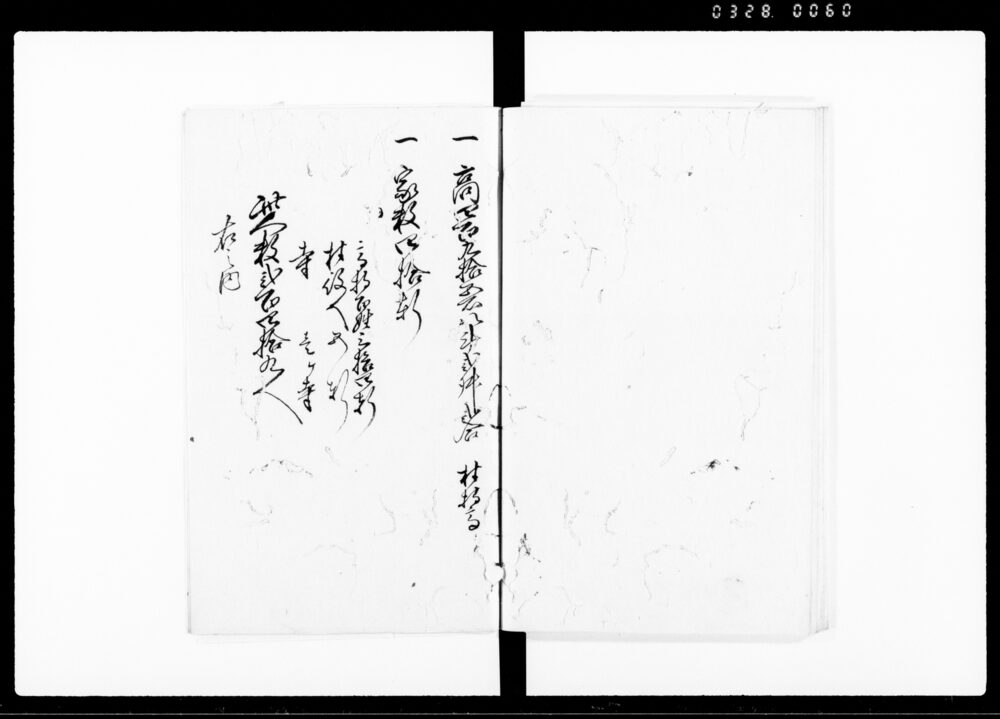 0328. 0060
一 高 百九拾 石 斗弐升 合 村
一 家数四拾軒
高持百姓三拾四軒
村役人 軒
寺 壱ヶ寺
此人数弐百四拾九人
右之内